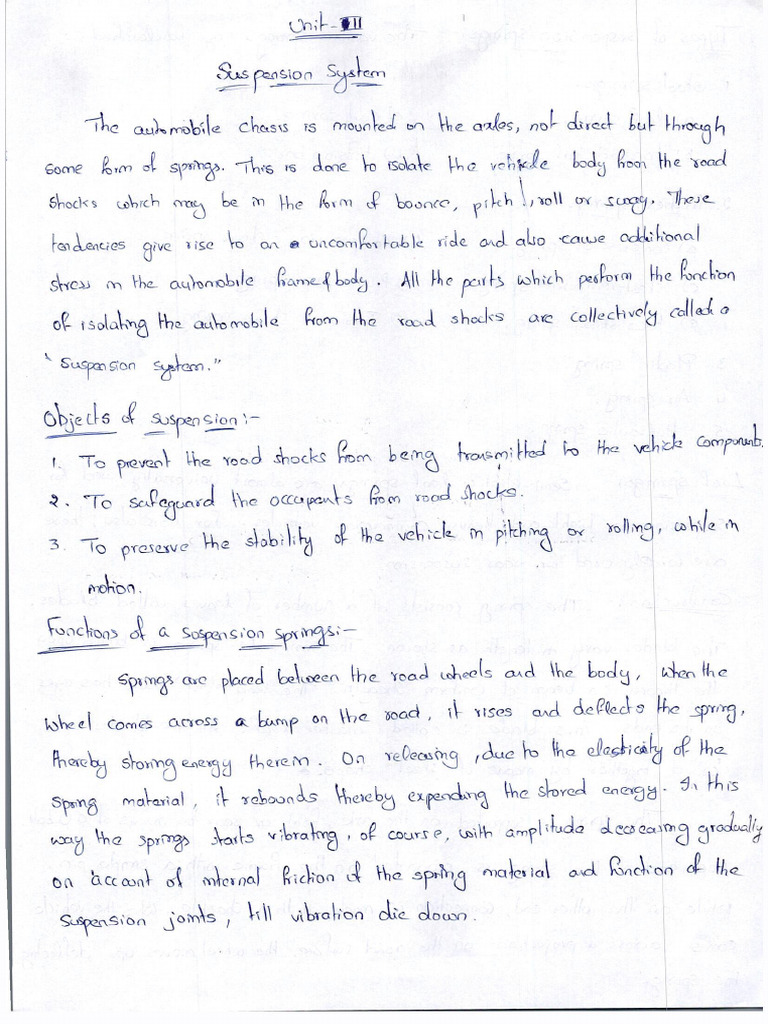 Unit - II
Suspension System
The automobile chasis is mounted on the axles, not direct but through
some form of springs. This is done to isolate the vehicle body from the road
shocks which may be in the form of bounce, pitch, roll or sway. These
tendencies give rise to an uncomfortable ride and also cause additional
stress in the automobile frame & body. All the parts which perform the function
of isolating the automobile from the road shocks are collectively called a
"Suspension system."
Objects of suspension:-
1. To prevent the road shocks from being transmitted to the vehicle components.
2. To safeguard the occupants from road shocks.
3. To preserve the stability of the vehicle in pitching or rolling, while in
motion.
Functions of a suspension springs:-
Springs are placed between the road wheels and the body, when the
wheel comes across a bump on the road, it rises and deflects the spring,
thereby storing energy therein. On releasing, due to the elasticity of the
spring material, it rebounds thereby expending the stored energy. In this
way the springs starts vibrating, of course, with amplitude decreasing gradually
on account of internal friction of the spring material and function of the
suspension joints, till vibration die down.